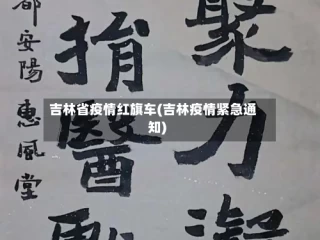 吉林省疫情红旗车(吉林疫情紧急通
知)
聚力凝
捐醫
都安陽惠風堂